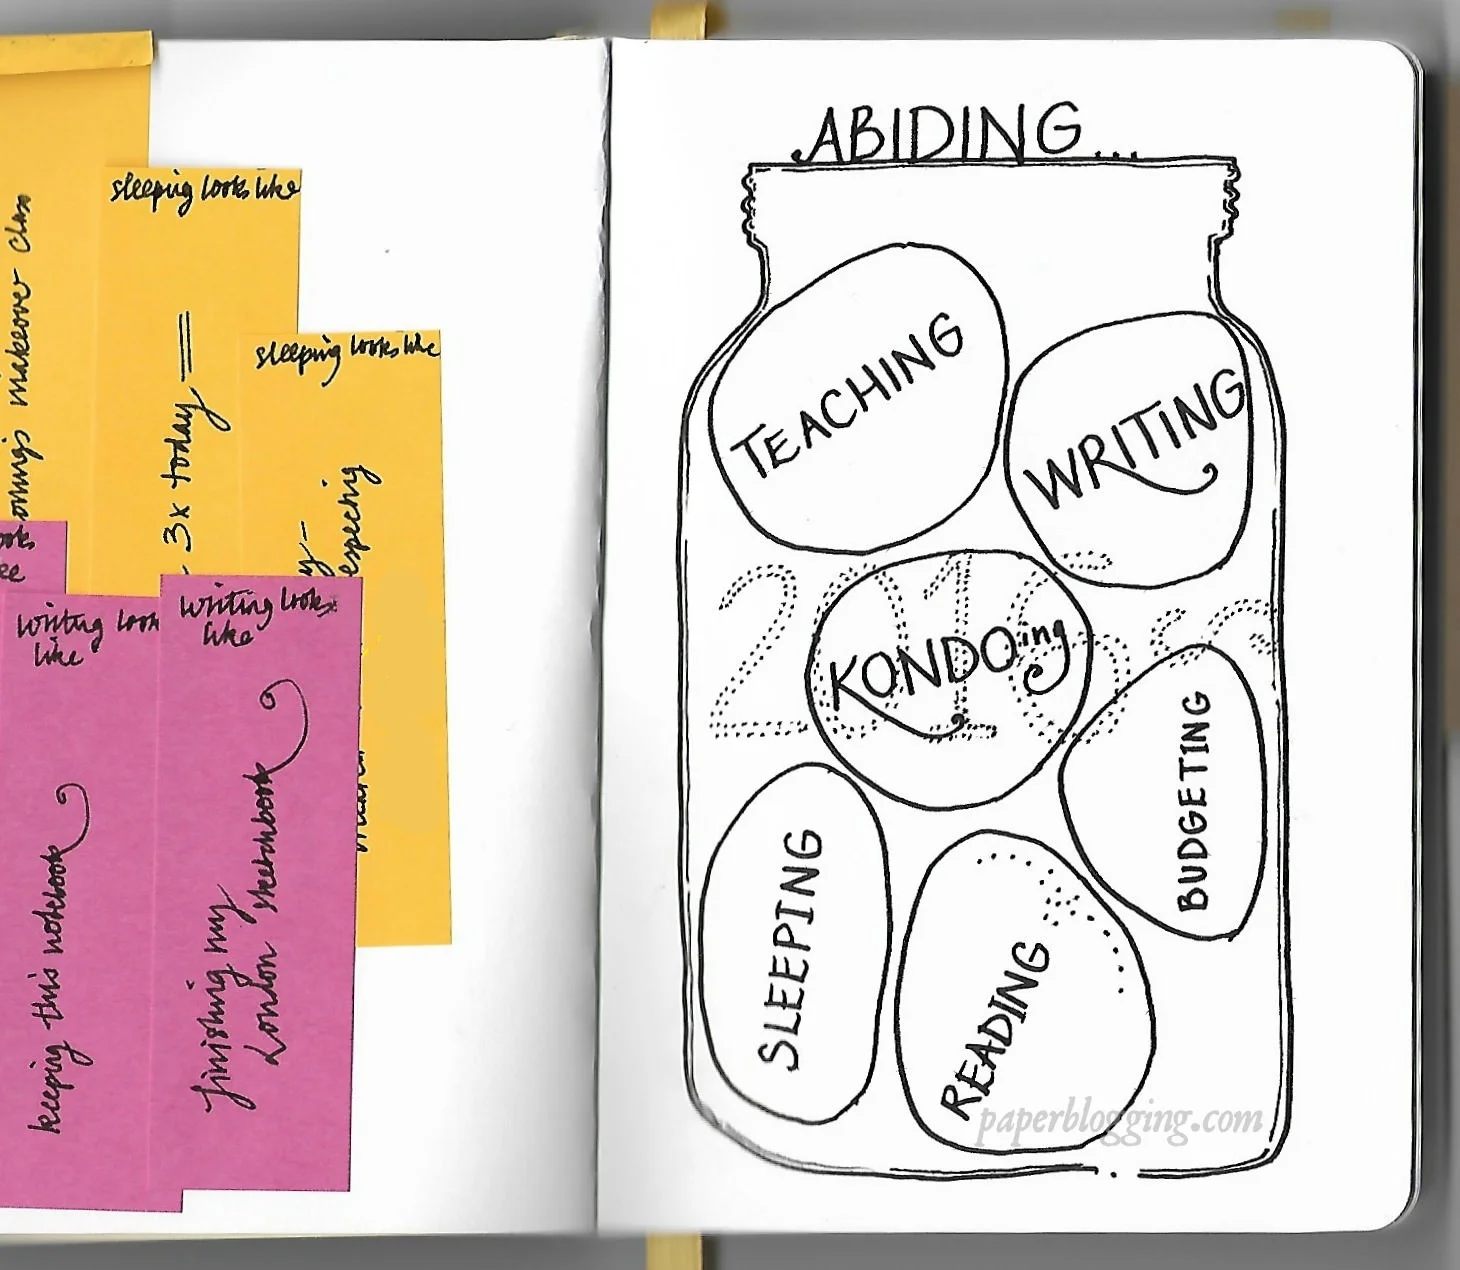 makeover class
sleeping looks like
3x today
sleeping looks like
writing look
like
keeping this notebook
writing looks
like
finishing my
London sketchbook
ABIDING...
TEACHING
WRITING
2016
KONDOing
BUDGETING
SLEEPING
READING
paperblogging.com